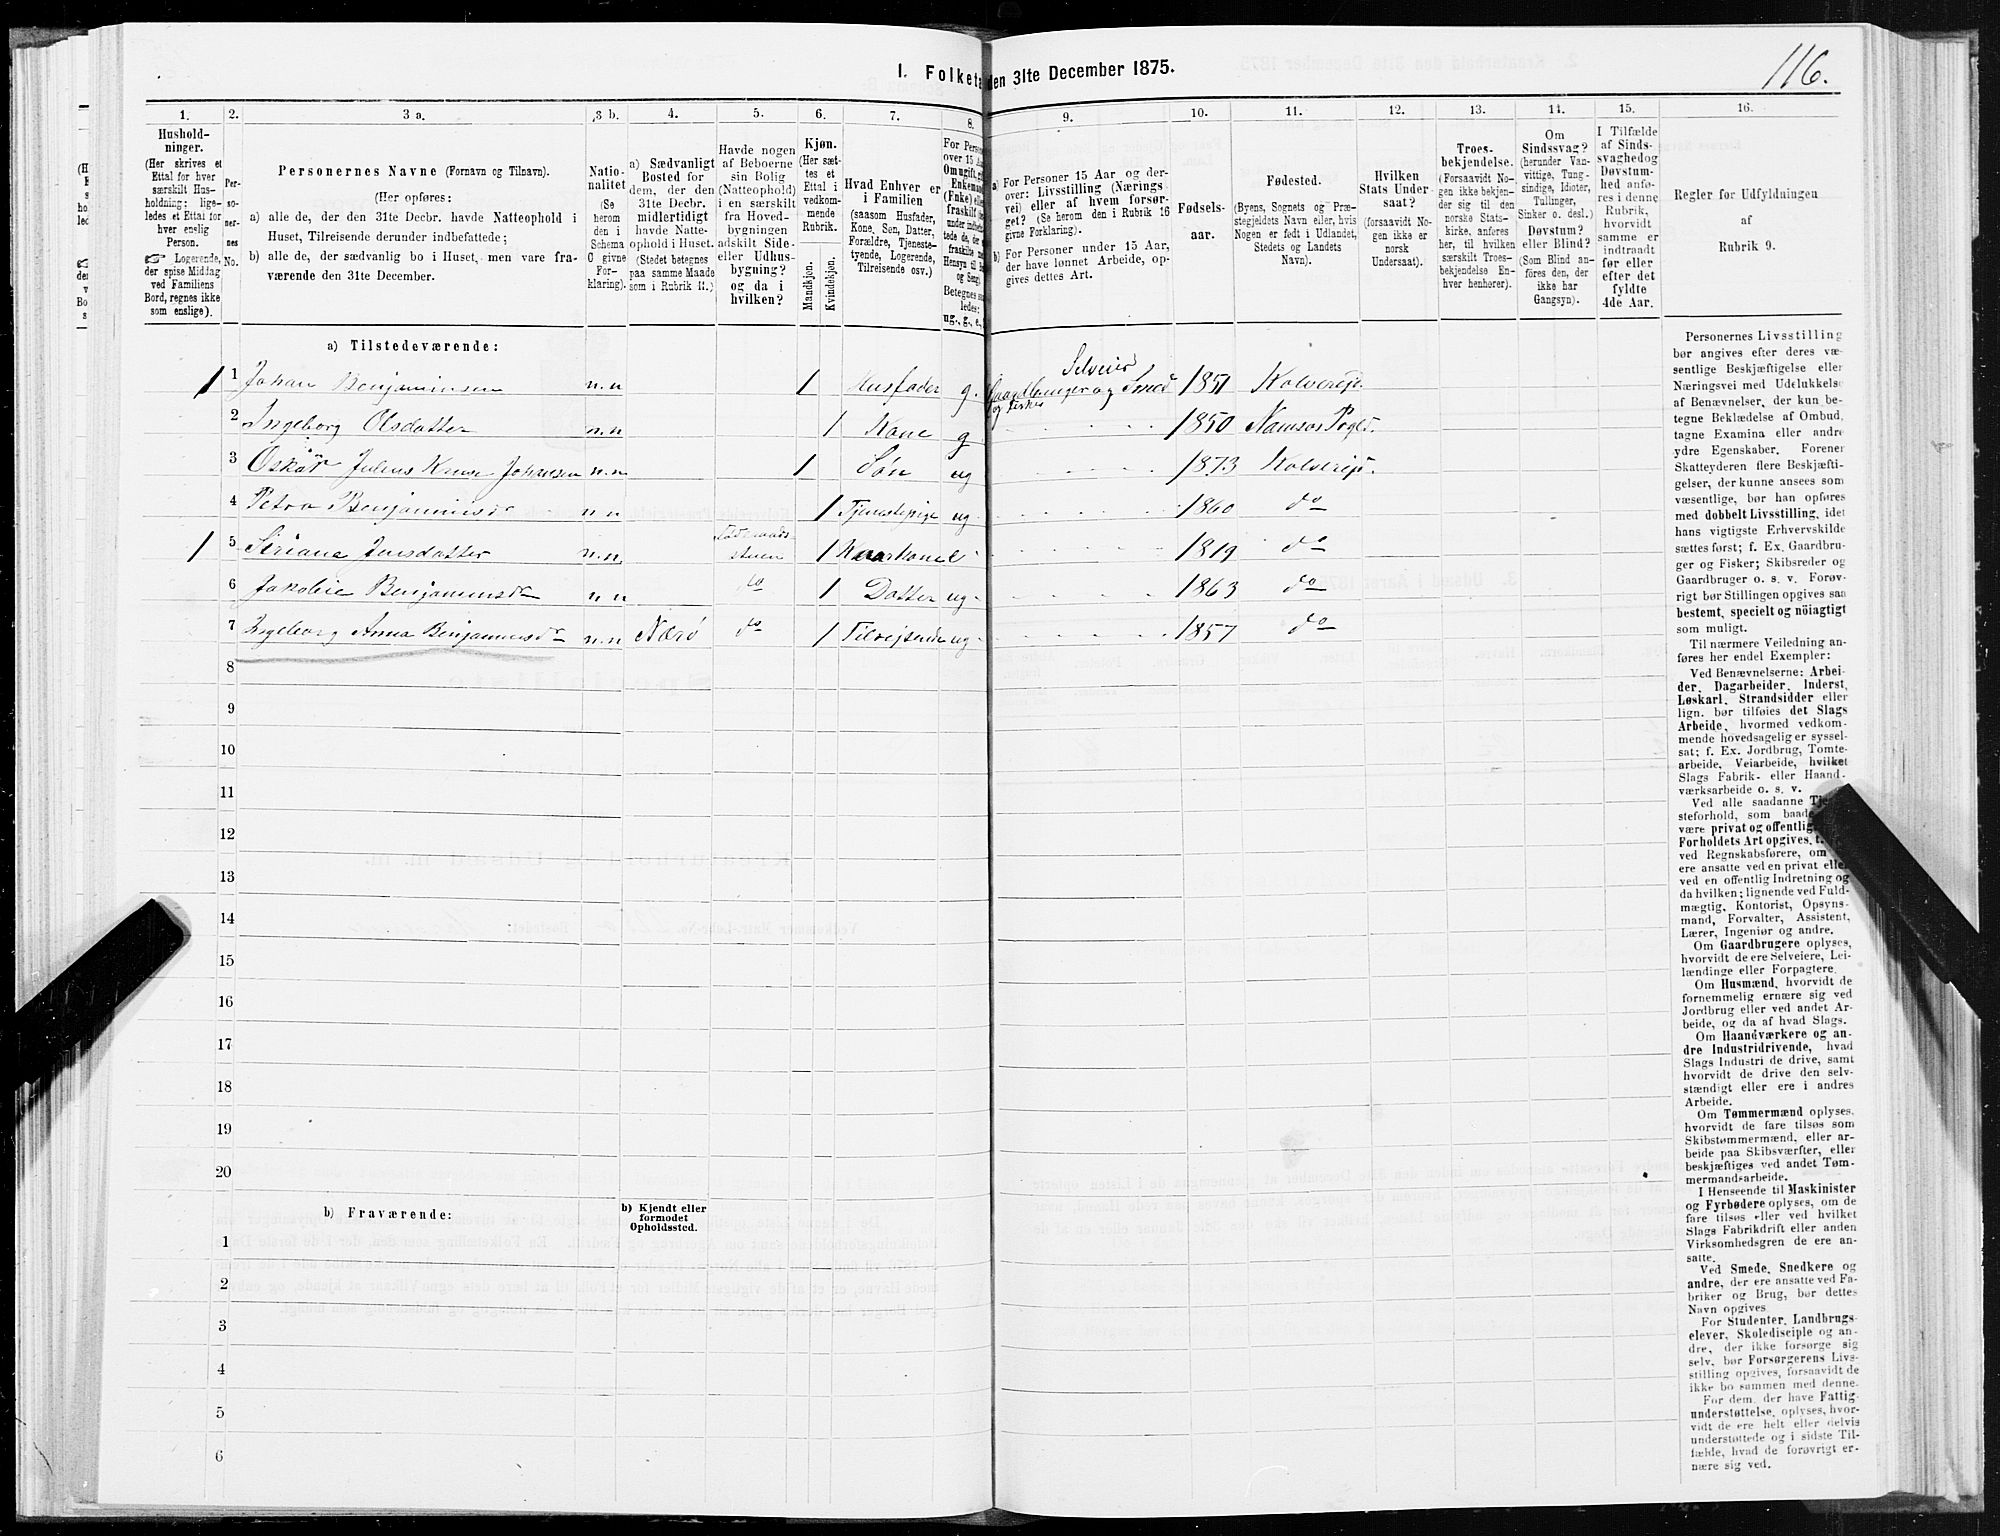 116.
I. Folketa
den 31te December 1875.
1.
Hushold-
ninger.
(Her skrives et
Ettal for hver
særskilt Hus-
holdning; lige-
ledes et Ettal for
hver enslig
Person.
☞ Logerende,
der spise Middag
ved Familiens
Bord, regnes ikke
som enslige).
2.
Per-
so-
ner-
nes
No.
3 a.
Personernes Navne (Fornavn og Tilnavn).
(Her opføres:
a) alle de, der den 31te Decbr. havde Natteophold i
Huset, Tilreisende derunder indbefattede;
b) alle de, der sædvanlig bo i Huset, men vare fra-
værende den 31te December.
3 b.
Natio-
nalitet
(Se
herom
den i
Schema
O givne
For-
klaring).
4.
a) Sædvanligt
Bosted for
dem, der den
31te Decbr.
midlertidigt
havde Natte-
ophold i Huset.
(Stedet betegnes
paa samme Maade
som i Rubrik 11.)
5.
Havde nogen
af Beboerne
sin Bolig
(Natteophold)
i en særskilt
fra Hoved-
bygningen
adskilt Side-
eller Udhus-
bygning?
og da i
hvilken?
6.
Kjøn.
(Her sæt-
tes et
Ettal i
vedkom-
mende
Rubrik.
Mandkjøn.
Kvindekjøn.
7.
Hvad Enhver er
i Familien
(saasom Husfader,
Kone, Søn, Datter,
Forældre, Tjeneste-
tyende, Logerende,
Tilreisende osv.)
8.
For Perso
over 15 Aar
Om ugift, gi
Enkema
(Fnke) elle
fraskilt
Betegnes saa
ledes:
ug., g., e.,
9.
a) For Personer 15 Aar og der-
over: Livsstilling (Nærings
vei) eller af hvem forsør-
get? (Se herom den i Rubrik 16
givne Forklaring).
b) For Personer under 15 Aar,
der have lønnet Arbeide, op-
gives dettes Art.
10.
Fødsels-
aar.
11.
Fødested.
(Byens, Sognets og Præ-
stegjeldets Navn eller, hvis
Nogen er født i Udlandet,
Stedets og Landets
Navn).
12.
Hvilken
Stats Under-
saat?
(forsaavidt No-
gen ikke er
norsk
Undersaat).
13.
Troes-
bekjendelse.
(Forsaavidt No-
gen ikke bekjen-
der sig til den
norske Stats-
kirke, anføres
her, til hvilken
særskilt Troes-
bekjendelse En-
hver henhører).
14.
Om
Sindssvag?
(herunder Van-
vittige, Tung-
sindige, Idioter,
Tullinger,
Sinker o. desl.)
Døvstum?
eller Blind?
(Som Blind an-
føres den, der
ikke har
Gangsyn).
15.
I Tilfælde
af Sinds-
svaghed og
Døvstum-
hed anfø-
res i denne
Rubrik,
hvorvidt
samme er
indtraadt
før eller
efter det
fyldte
4de Aar.
16.
Regler for Udfyldningen
af
Rubrik 9.
a) Tilstedeværende:
Selveier
1 1 Johan Benjaminsen n.n 1 Husfader g. Gaardbruger og Smed 1851 Kolverejd.
og Fisker
2 Ingeborg Olsdatter n.n 1 Kone g 1850 Namsos Pgld.
3 Oskar Julius Johansen n.n 1 Søn ug 1873 Kolverejd.
4 Petra Benjaminsd n.n 1 Tjenestepige ug 1860 do
1 5 Seriane Jensdatter n.n. Føderaads stuen 1 Kaarkone e 1819 do
6 Jakobie Benjaminsdr n n do 1 Datter ug 1863 do
7 Ingeborg Anna Benjaminsdr n.n Nærø do 1 Tilrejsende ug 1857 do
8
9
10
11
12
13
14
15
16
17
18
19
20
b) Fraværende:
b) Kjendt eller
formodet
Opholdssted.
1
2
3
4
5
6
Personernes Livsstilling
bør angives efter deres væ-
sentlige Beskjæftigelse eller
Næringsvei med Udelukkelse
af Benævnelser, der kun be-
tegne Beklædelse af Ombud,
tagne Examina eller andre
ydre Egenskaber. Forener
Skatteyderen flere Beskjæfti-
gelser, der kunne ansees som
væsentlige, bør han opføres
med dobbelt Livsstilling, idet
hans vigtigste Erhvervskilde
sættes først; f. Ex. Gaardbru-
ger og Fisker; Skibsreder og
Gaardbruger o. s. v. Forøv-
rigt bør Stillingen opgives saa
bestemt, specielt og nöiagtigt
som muligt.
Til nærmere Veiledning an-
føres her endel Exempler:
Ved Benævnelserne: Arbei-
der, Dagarbeider, Inderst,
Løskarl, Strandsidder eller
lign. bør tilføies det Slags
Arbeide, hvormed vedkom-
mende hovedsagelig er syssel-
sat; f. Ex. Jordbrug, Tomte-
arbeide, Veiarbeide, hvilket
Slags Fabrik- eller Haand-
værksarbeide o. s. v.
Ved alle saadanne
steforhold, som
være privat og
Forholdets Art opgives,
ved Regnskabsførere, om
ere ansatte ved en privat eller
ved en offentlig Indretning og
da hvilken; lignende ved Fuld-
mægtig, Kontorist, Opsyns-
mand, Forvalter, Assistent,
Lærer, Ingeniør og andre.
Om Gaardbrugere oplyses,
hvorvidt de ere Selveiere, Lei-
lændinge eller Forpagtere.
Om Husmænd, hvorvidt de
fornemmelig ernære sig ved
Jordbrug eller ved andet Ar-
beide, og da af hvad Slags.
Om Haandværkere og an-
dre Industridrivende, hvad
Slags Industri de drive, samt
hvorvidt de drive den selv-
stændigt eller ere i andres
Arbeide.
Om Tømmermænd oplyses,
hvorvidt de fare tilsøs som
Skibstømmermænd, eller ar-
beide paa Skibsværfter, eller
beskjæftiges ved andet Tøm-
mermandsarbeide.
I Henseende til Maskinister
og Fyrbødere oplyses, om de
fare tilsøs eller ved hvilket
Slags Fabrikdrift eller anden
Virksomhedsgren de ere an-
satte.
Ved Smede, Snedkere og
andre, der ere ansatte ved Fa-
briker og Brug, bør dettes
Navn opgives
For Studenter, Landbrugs-
elever, Skoledisciple og an-
dre, der ikke forsørge sig
selv, bør Forsørgerens Livs-
stilling opgives, forsaavidt de
ikke bo sammen med denne.
For dem, der have Fattig-
understøttelse, oplyses, hvor-
vidt de ere helt eller delvis
understøttede og i sidste Til-
fælde, hvad de forøvrigt er-
nære sig ved.